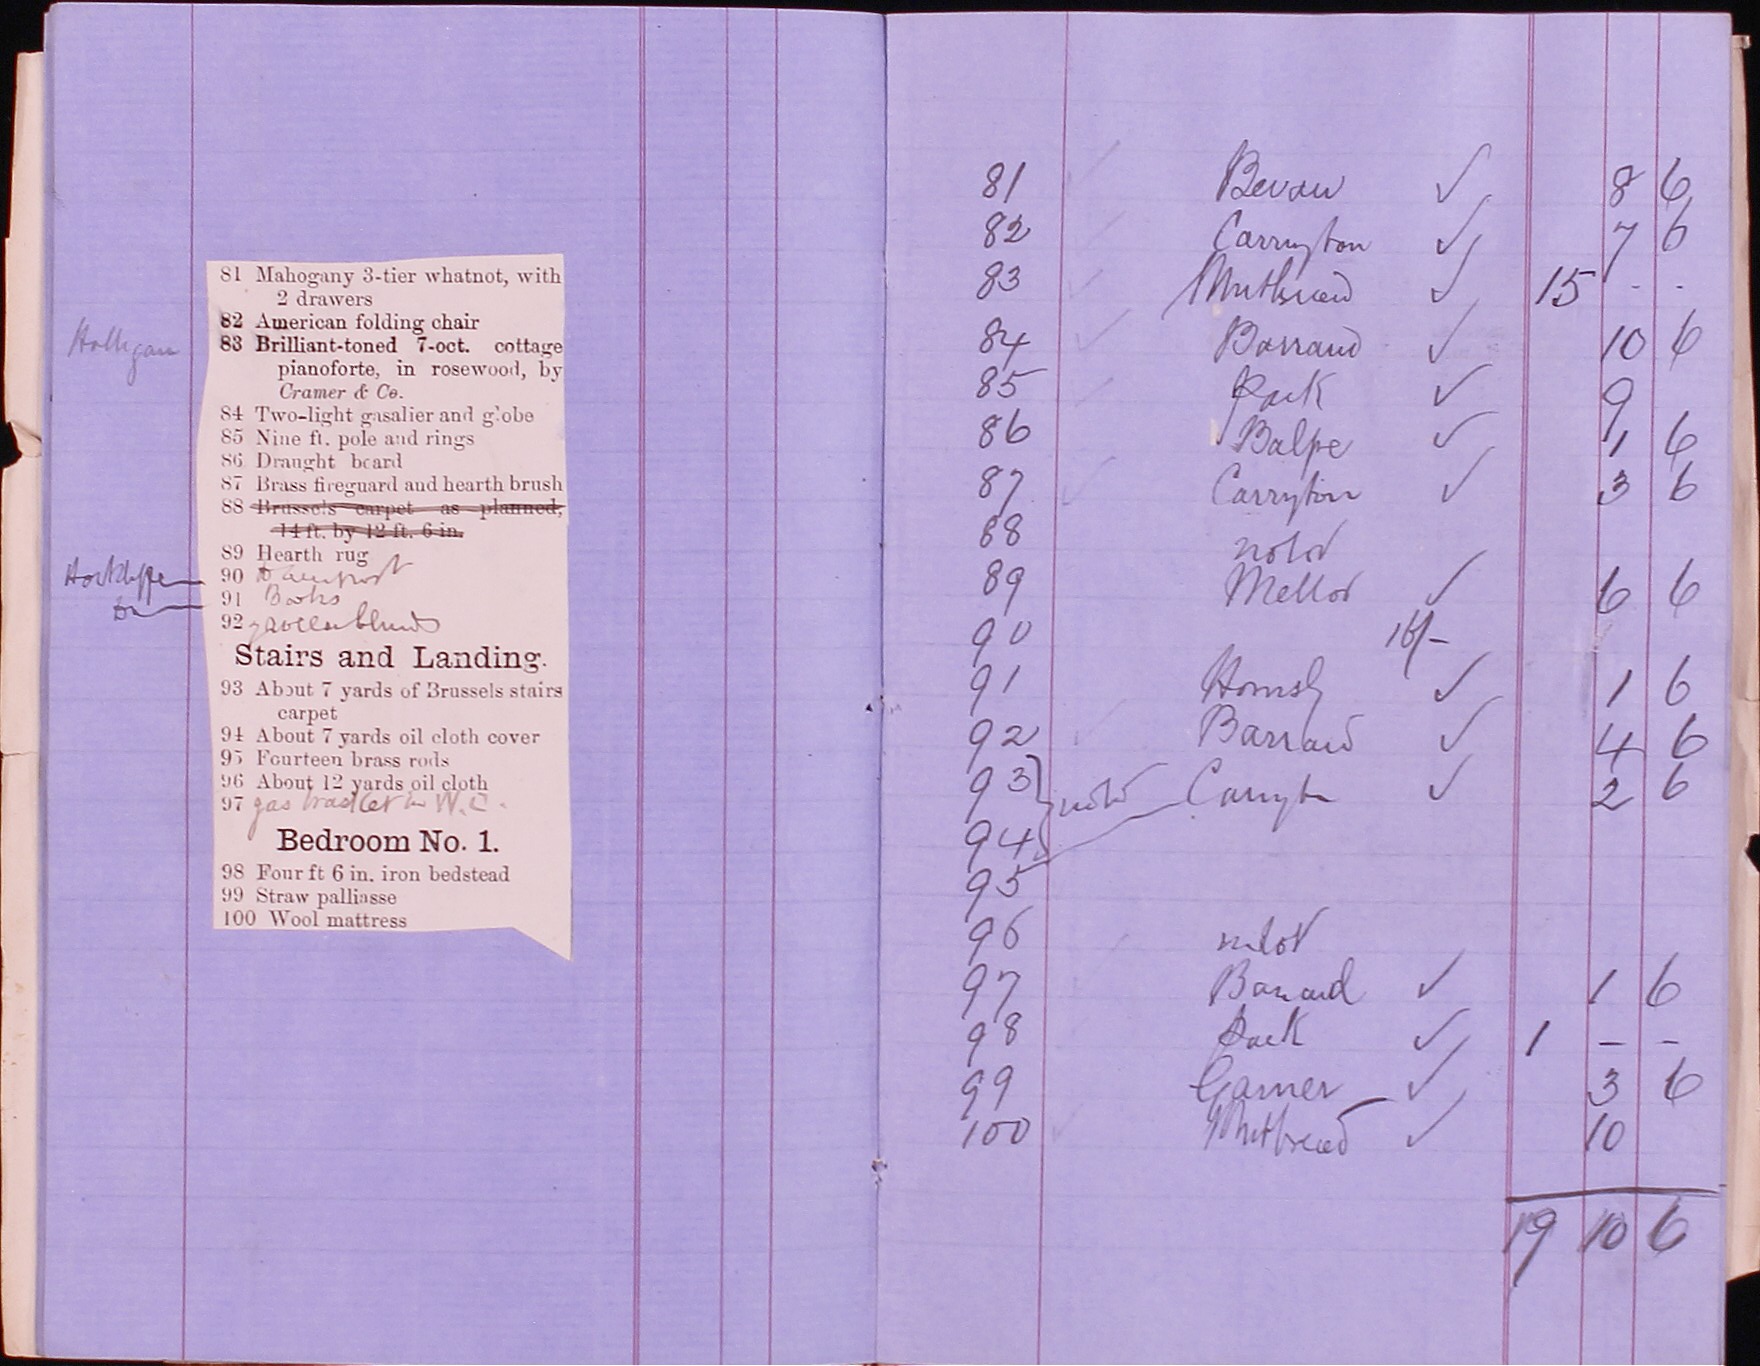 81 Mahogany 3-tier whatnot, with
2 drawers
82 American folding chair
Halligan
83 Brilliant-toned 7-oct. cottage
pianoforte, in rosewood, by
Cramer & Co.
84 Two-light gasalier and globe
85 Nine ft. pole and rings
86 Draught board
87 Brass fireguard and hearth brush
88 Brussels carpet as planned,
14 ft. by 12 ft. 6 in.
89 Hearth rug
90
91 Books
92 blinds
Stairs and Landing.
93 About 7 yards of Brussels stairs
carpet
94 About 7 yards oil cloth cover
95 Fourteen brass rods
96 About 12 yards oil cloth
97 gas bracket in W.C.
Bedroom No. 1.
98 Four ft 6 in. iron bedstead
99 Straw palliasse
100 Wool mattress
81 Bevan ✓ 8 6
82 Carryton ✓ 7 6
83 Whitbread ✓ 15 - -
84 Barraud ✓ 10 6
85 Pack ✓ 9
86 Balpe ✓ 1 6
87 Carryton ✓ 3 6
88 no lot
89 Mellor ✓ 6 6
90 16/-
91 Hornsby ✓ 1 6
92 Barraud ✓ 4 6
93 no lot Carryton ✓ 2 6
94
95
96 no lot
97 Barraud ✓ 1 6
98 Pack ✓ 1 - -
99 Garner ✓ 3 6
100 Whitbread ✓ 10
19 10 6